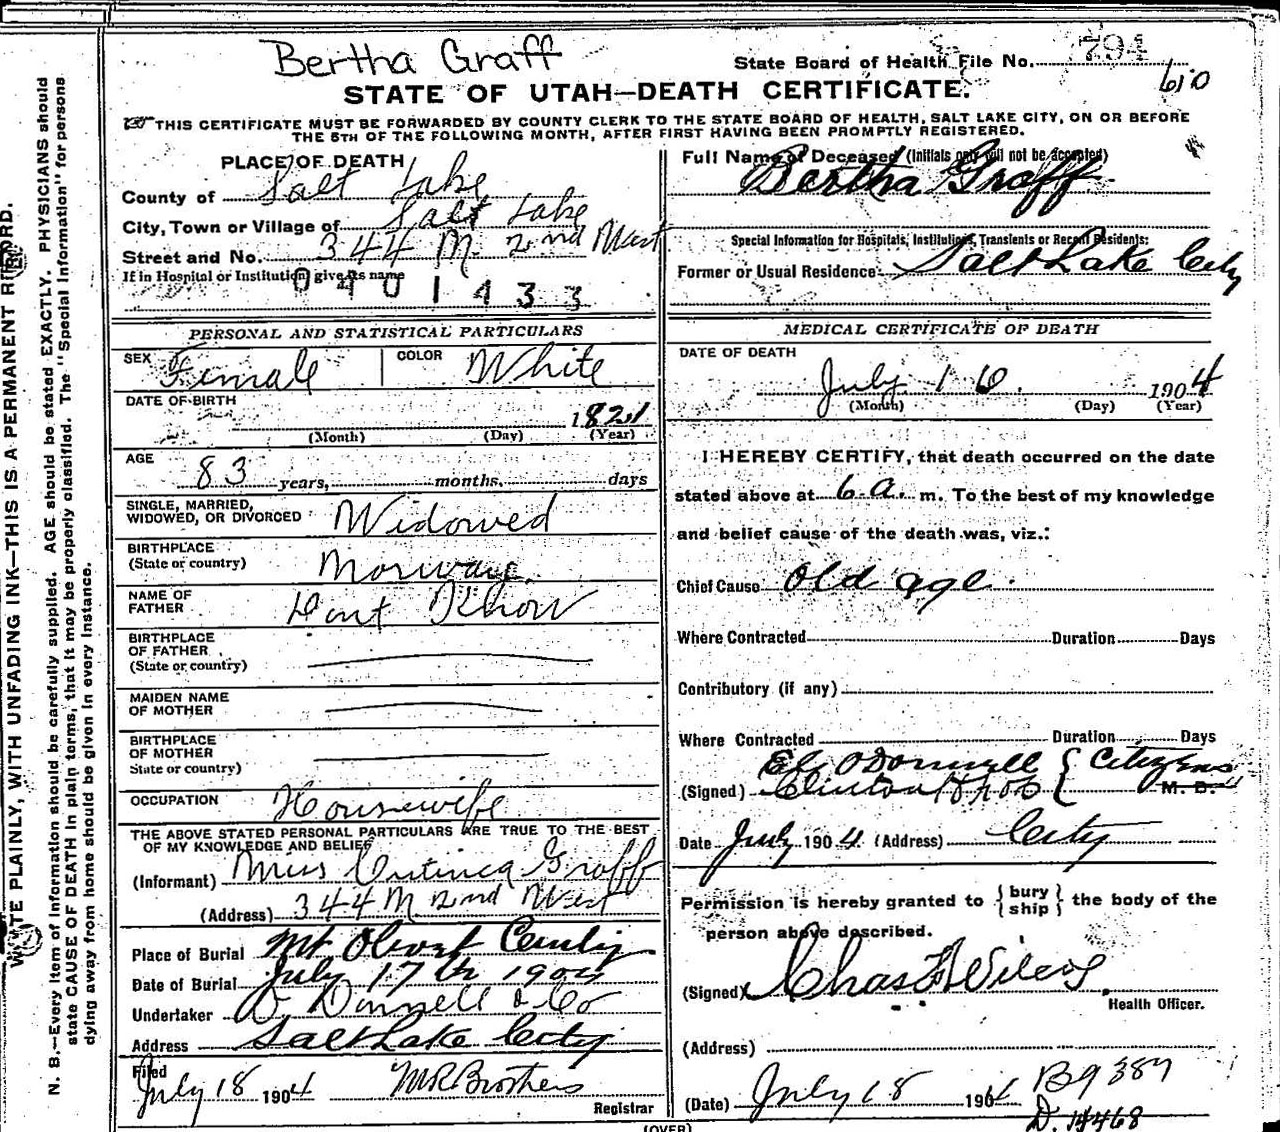 Bertha Graff
State Board of Health File No. 794
610
STATE OF UTAH—DEATH CERTIFICATE.
THIS CERTIFICATE MUST BE FORWARDED BY COUNTY CLERK TO THE STATE BOARD OF HEALTH, SALT LAKE CITY, ON OR BEFORE
THE 5TH OF THE FOLLOWING MONTH, AFTER FIRST HAVING BEEN PROMPTLY REGISTERED.
PLACE OF DEATH
County of Salt Lake
City, Town or Village of Salt Lake
Street and No. 344 N. 2nd West
If in Hospital or Institution give its name
0401433
Full Name of Deceased (Initials only will not be accepted)
Bertha Graff
Special Information for Hospitals, Institutions, Transients or Recent Residents:
Former or Usual Residence Salt Lake City
PERSONAL AND STATISTICAL PARTICULARS
SEX Female COLOR White
DATE OF BIRTH
1821
(Month) (Day) (Year)
AGE
83 years, months, days
SINGLE, MARRIED,
WIDOWED, OR DIVORCED Widowed
BIRTHPLACE
(State or country) Norway
NAME OF
FATHER Dont Know
BIRTHPLACE
OF FATHER
(State or country)
MAIDEN NAME
OF MOTHER
BIRTHPLACE
OF MOTHER
State or country)
OCCUPATION Housewife
THE ABOVE STATED PERSONAL PARTICULARS ARE TRUE TO THE BEST
OF MY KNOWLEDGE AND BELIEF
(Informant) Miss Graff
(Address) 344 N 2nd West
Place of Burial Mt Olivet
Date of Burial July 17th 1904
Undertaker O'Donnell & Co
Address Salt Lake City
Filed
July 18 1904 Registrar
MEDICAL CERTIFICATE OF DEATH
DATE OF DEATH
July 16 1904
(Month) (Day) (Year)
I HEREBY CERTIFY, that death occurred on the date
stated above at 6 a. m. To the best of my knowledge
and belief cause of the death was, viz.:
Chief Cause Old age.
Where Contracted Duration Days
Contributory (if any)
Where Contracted Duration Days
O'Donnell { Citizens
(Signed) Clinton M. D.
Date July 1904 (Address) City
Permission is hereby granted to { bury
ship } the body of the
person above described.
(Signed) Chas
Health Officer.
(Address)
(Date) July 18 1904 B9387
D. 14468
(OVER)
WRITE PLAINLY, WITH UNFADING INK—THIS IS A PERMANENT RECORD.
N. B.—Every item of information should be carefully supplied. AGE should be stated EXACTLY. PHYSICIANS should
state CAUSE OF DEATH in plain terms, that it may be properly classified. The "Special Information" for persons
dying away from home should be given in every instance.